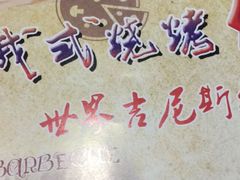 俄式烧烤
世界吉尼斯
BARBECUE